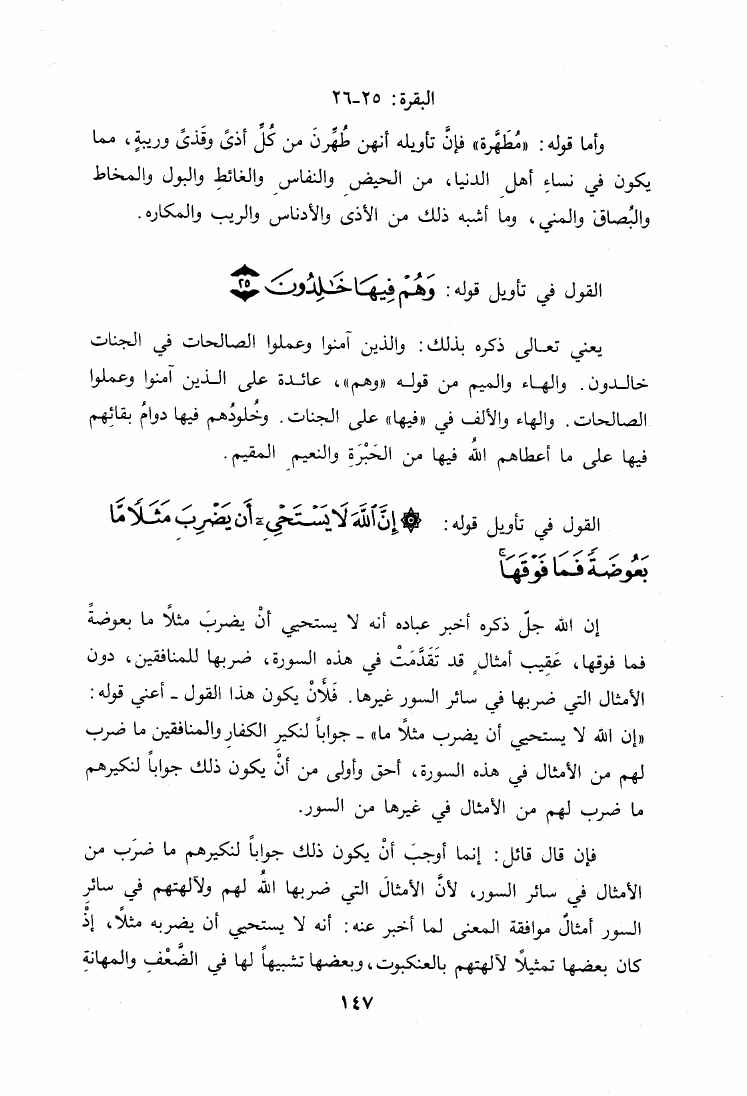 البقرة: ٢٥-٢٦
وأما قوله: «مُطَهَّرة» فإنَّ تأويله أنهن طُهِّرنَ من كُلِّ أذىً وقَذىً وريبةٍ، مما
يكون في نساءِ أهلِ الدنيا، من الحيضِ والنفاسِ والغائطِ والبول والمخاط
والبُصاق والمني، وما أشبه ذلك من الأذى والأدناس والريب والمكاره.
القول في تأويل قوله: وَهُمْ فِيهَا خَٰلِدُونَ ٢٥
يعني تعالى ذكره بذلك: والذين آمنوا وعملوا الصالحات في الجنات
خالدون. والهاء والميم من قوله «وهم»، عائدة على الذين آمنوا وعملوا
الصالحات. والهاء والألف في «فيها» على الجنات. وخُلودُهم فيها دوامُ بقائِهم
فيها على ما أعطاهم اللهُ فيها من الحَبْرَةِ والنعيمِ المقيم.
القول في تأويل قوله: ۞ إِنَّ ٱللَّهَ لَا يَسْتَحْىِۦٓ أَن يَضْرِبَ مَثَلًا مَّا
بَعُوضَةً فَمَا فَوْقَهَا ۚ
إن الله جلّ ذكره أخبر عباده أنه لا يستحيي أنْ يضربَ مثلًا ما بعوضةً
فما فوقها، عَقِيب أمثالٍ قد تَقَدَّمَتْ في هذه السورة، ضربها للمنافقين، دون
الأمثال التي ضربها في سائر السور غيرها. فَلَأنْ يكون هذا القول - أعني قوله:
«إن الله لا يستحيي أن يضرب مثلًا ما» - جواباً لنكير الكفار والمنافقين ما ضرب
لهم من الأمثال في هذه السورة، أحق وأولى من أنْ يكون ذلك جواباً لنكيرهم
ما ضرب لهم من الأمثال في غيرها من السور.
فإن قال قائل: إنما أوجبَ أنْ يكون ذلك جواباً لنكيرهم ما ضرَب من
الأمثال في سائر السور، لأنَّ الأمثالَ التي ضربها اللهُ لهم ولآلهتهم في سائرِ
السور أمثالٌ موافقة المعنى لما أخبر عنه: أنه لا يستحيي أن يضربه مثلًا، إذْ
كان بعضها تمثيلًا لآلهتهم بالعنكبوت، وبعضها تشبيهاً لها في الضَّعْفِ والمهانةِ
١٤٧